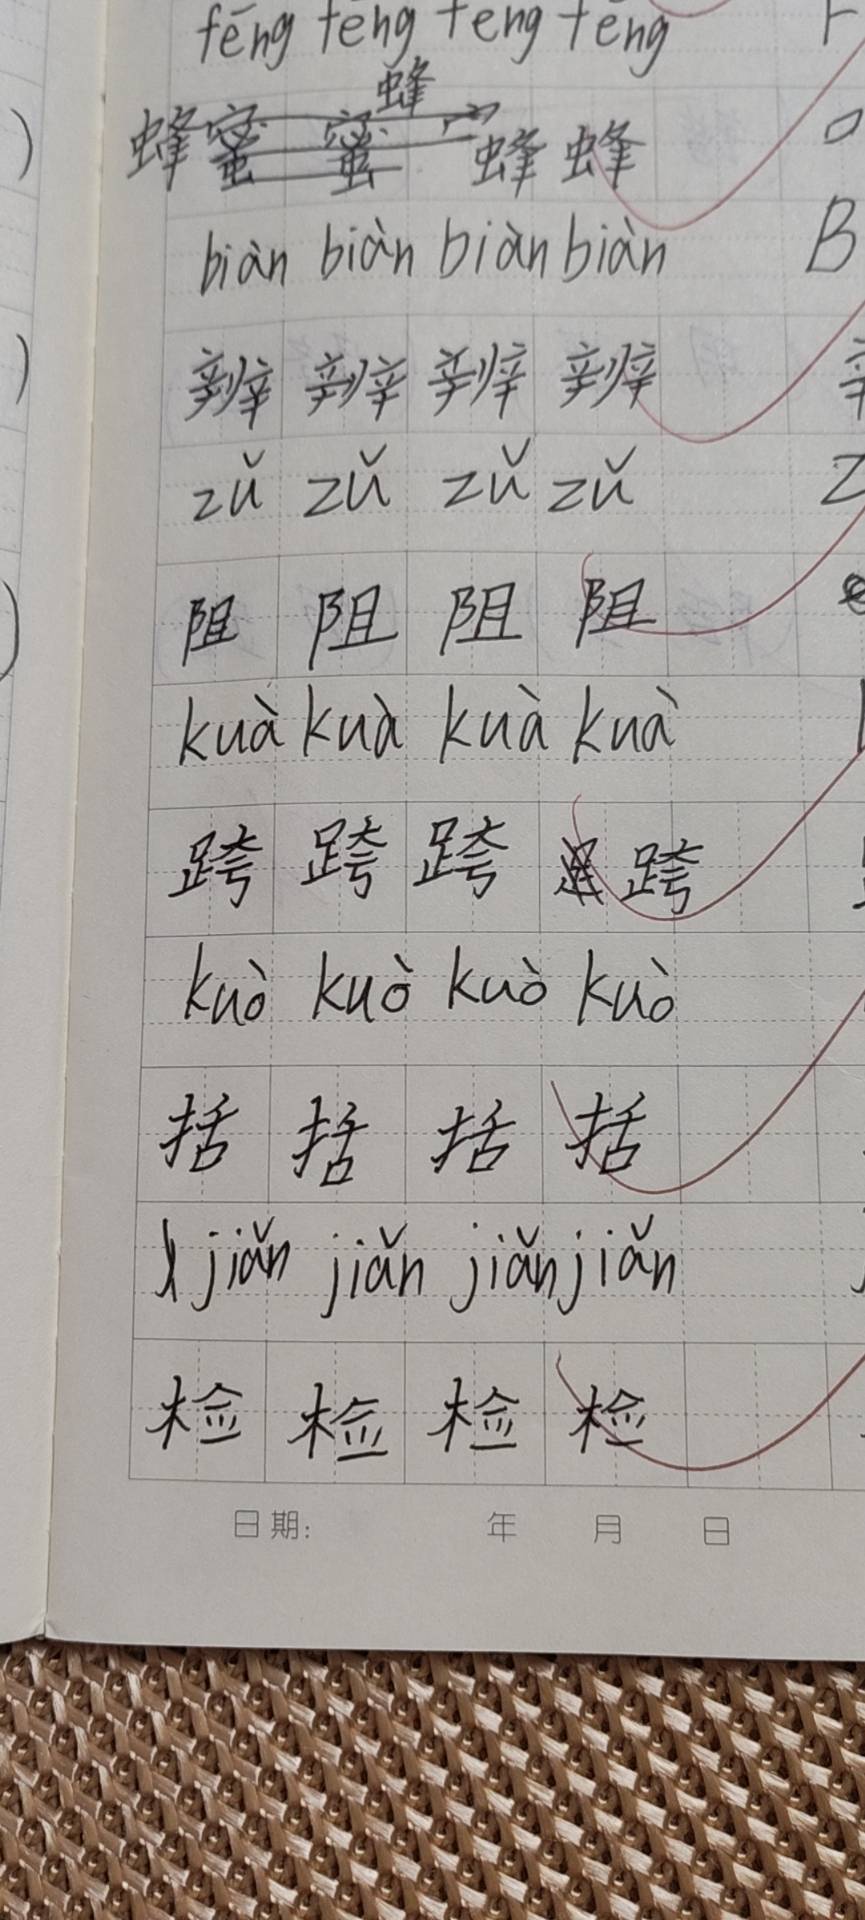 fēng fēng fēng fēng
蜂
蜂 蜜 蜜 蜂 蜂
biàn biàn biàn biàn B
辨 辨 辨 辨
zǔ zǔ zǔ zǔ Z
阻 阻 阻 阻
kuà kuà kuà kuà
跨 跨 跨 跨
kuò kuò kuò kuò
括 括 括 括
jiǎn jiǎn jiǎn jiǎn
检 检 检 检
日期: 年 月 日